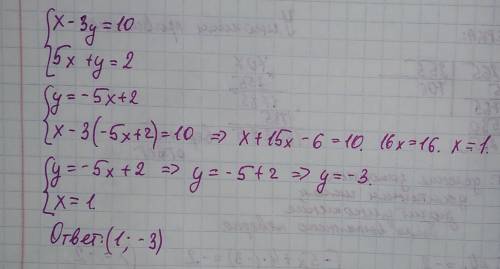 {x - 3y = 10
{5x + y = 2
{y = -5x + 2
{x - 3(-5x+2) = 10 ⇒ x + 15x - 6 = 10. 16x = 16. x = 1.
{y = -5x + 2 ⇒ y = -5 + 2 ⇒ y = -3.
{x = 1
Ответ: (1; -3)